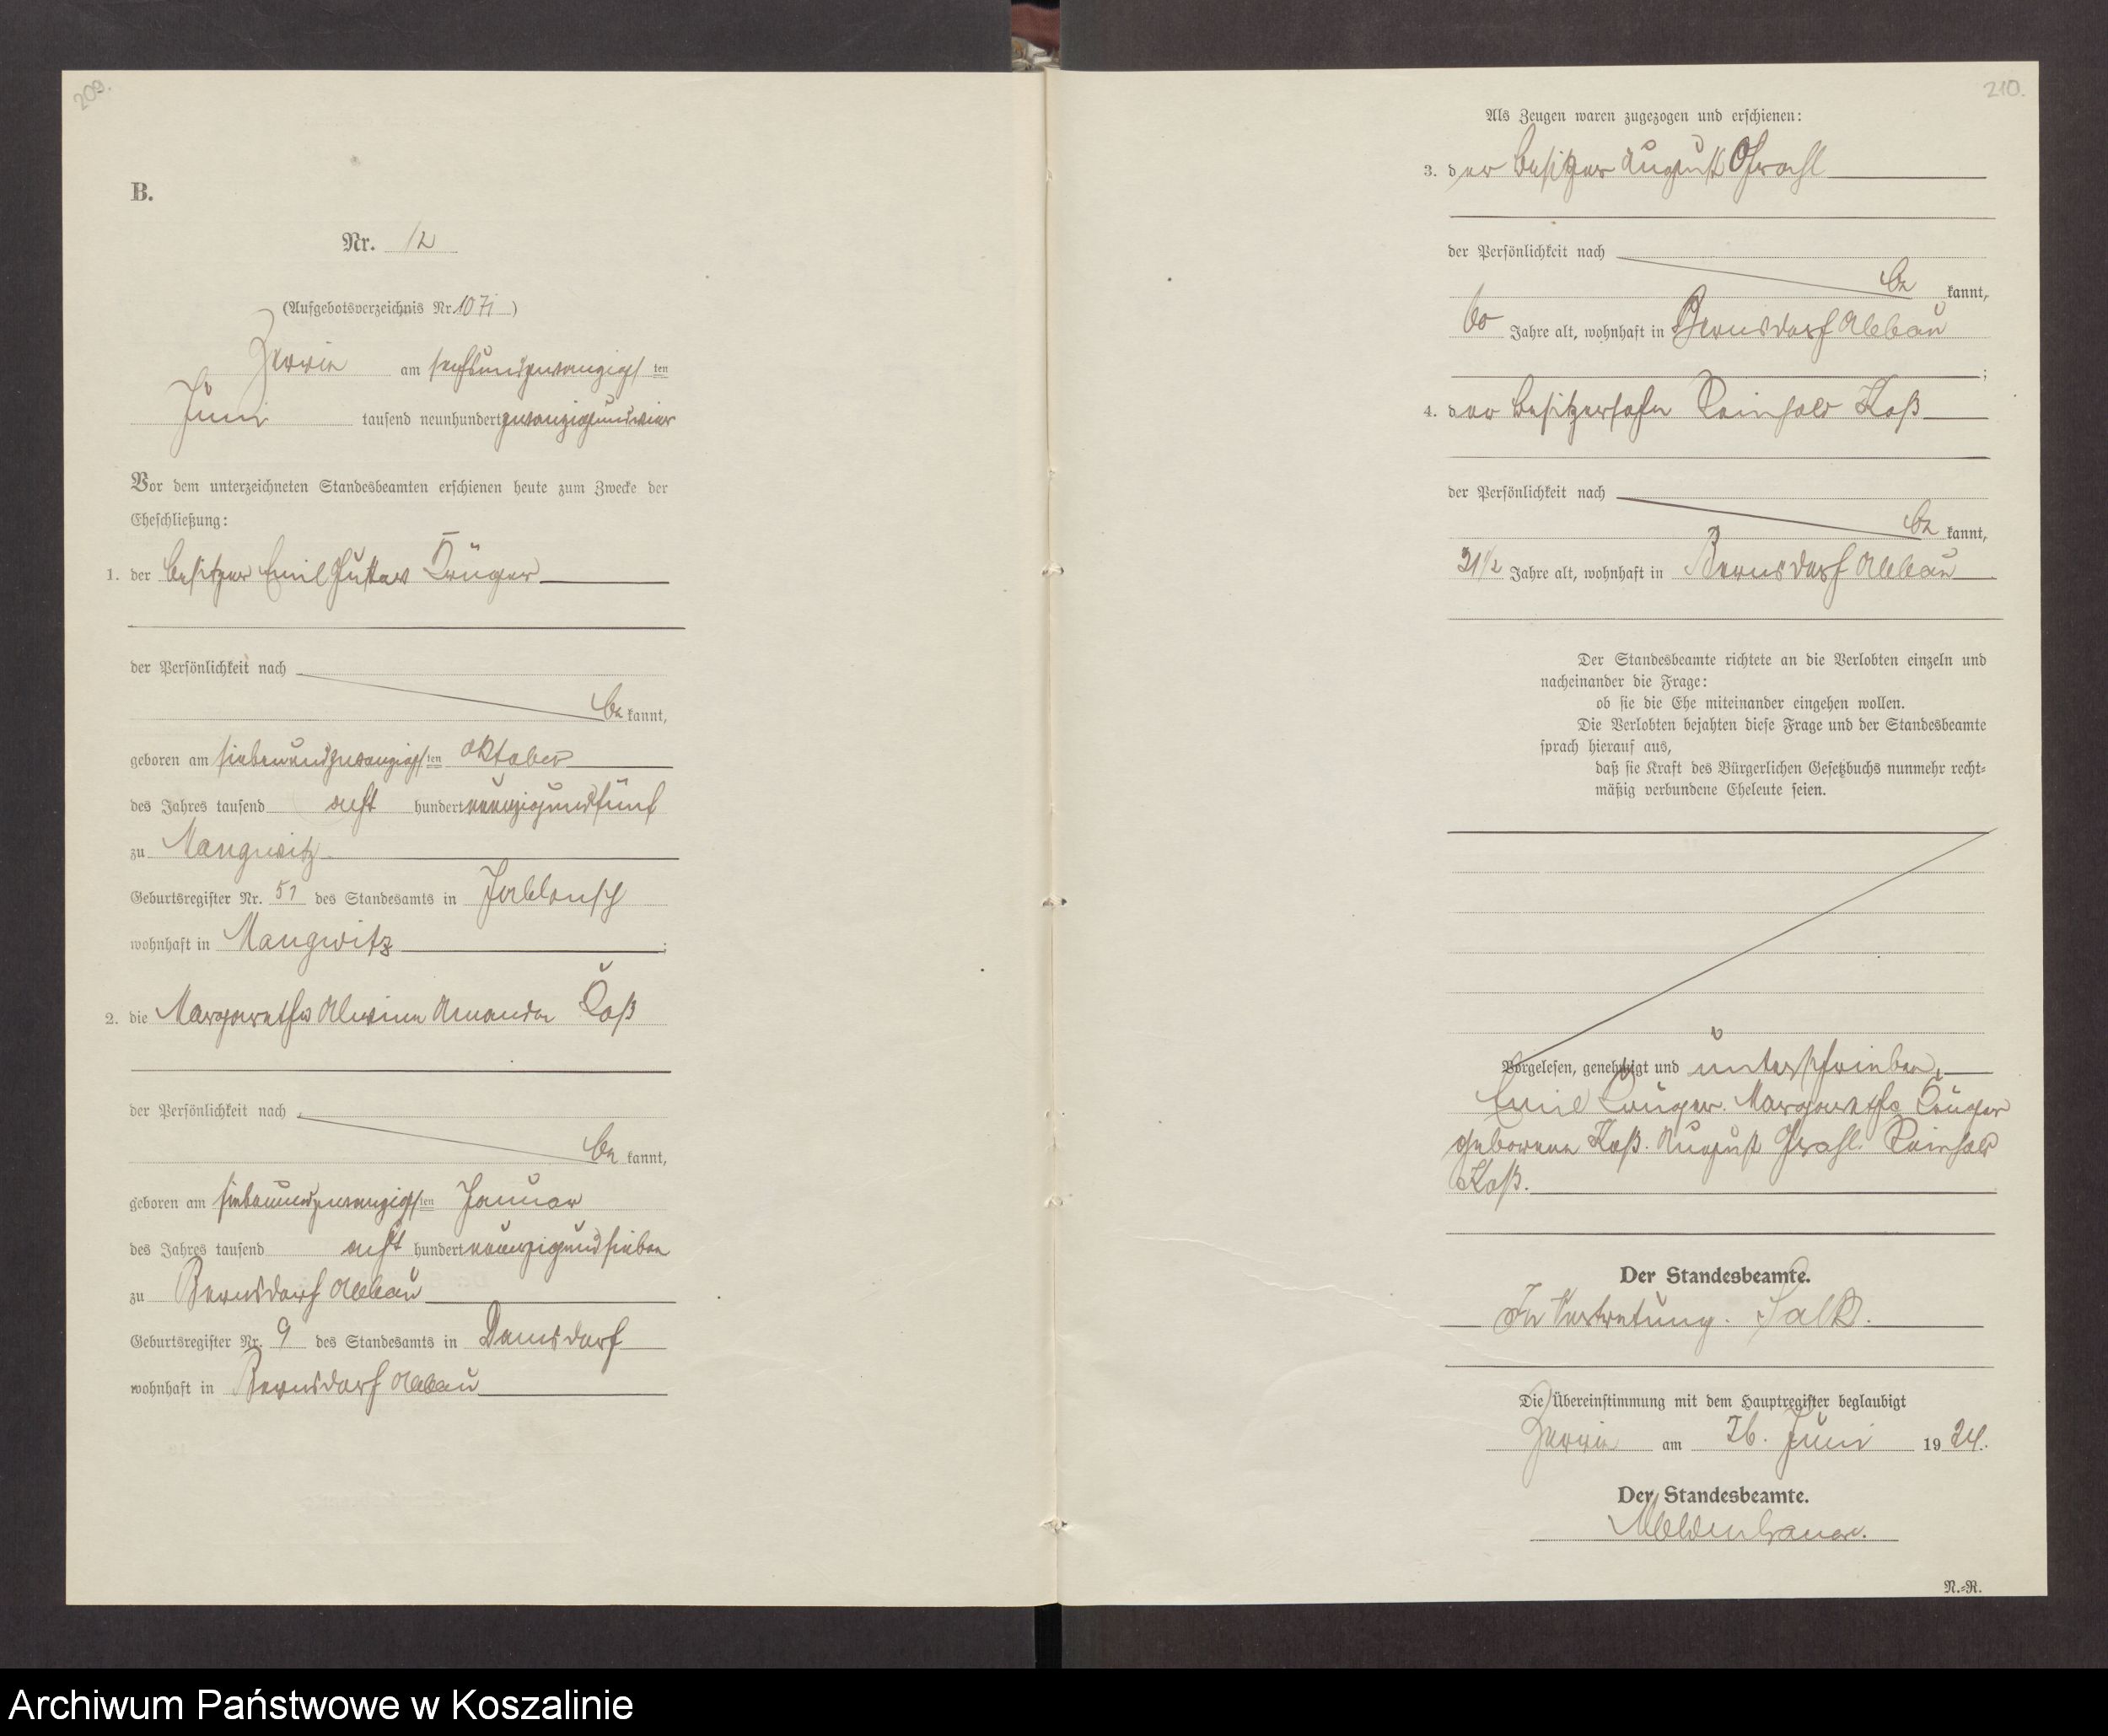 209.
B.
Nr. 12
(Aufgebotsverzeichnis Nr. )
Zerrin am sechsundzwanzigsten
Juni tausend neunhundertzwanzigundvier
Vor dem unterzeichneten Standesbeamten erschienen heute zum Zwecke der
Eheschließung:
1. der Besitzer Emil Gustav Krüger
der Persönlichkeit nach
be kannt,
geboren am siebenundzwanzigsten Oktober
des Jahres tausend acht hundert neunzigundfünf
zu Mangwitz
Geburtsregister Nr. 51 des Standesamts in Jablonsch
wohnhaft in Mangwitz;
2. die Margarethe Alwine Amanda Koß
der Persönlichkeit nach
be kannt,
geboren am siebenundzwanzigsten Januar
des Jahres tausend acht hundert neunzigundsieben
zu Bernsdorf Abbau
Geburtsregister Nr. 9 des Standesamts in Damsdorf
wohnhaft in Bernsdorf Abbau
210.
Als Zeugen waren zugezogen und erschienen:
3. der Besitzer August Grahl
der Persönlichkeit nach
be kannt,
60 Jahre alt, wohnhaft in Bernsdorf Abbau
;
4. der Besitzersohn Reinhold Koß
der Persönlichkeit nach
be kannt,
21½ Jahre alt, wohnhaft in Bernsdorf Abbau
Der Standesbeamte richtete an die Verlobten einzeln und
nacheinander die Frage:
ob sie die Ehe miteinander eingehen wollen.
Die Verlobten bejahten diese Frage und der Standesbeamte
sprach hierauf aus,
daß sie Kraft des Bürgerlichen Gesetzbuchs nunmehr recht-
mäßig verbundene Eheleute seien.
Vorgelesen, genehmigt und unterschrieben,
Emil Krüger. Margarethe Krüger
geborene Koß. August Grahl. Reinhold
Koß.
Der Standesbeamte.
In Vertretung.
Die Übereinstimmung mit dem Hauptregister beglaubigt
Zerrin am 26. Juni 1924.
Der Standesbeamte.
N.-R.
Archiwum Państwowe w Koszalinie